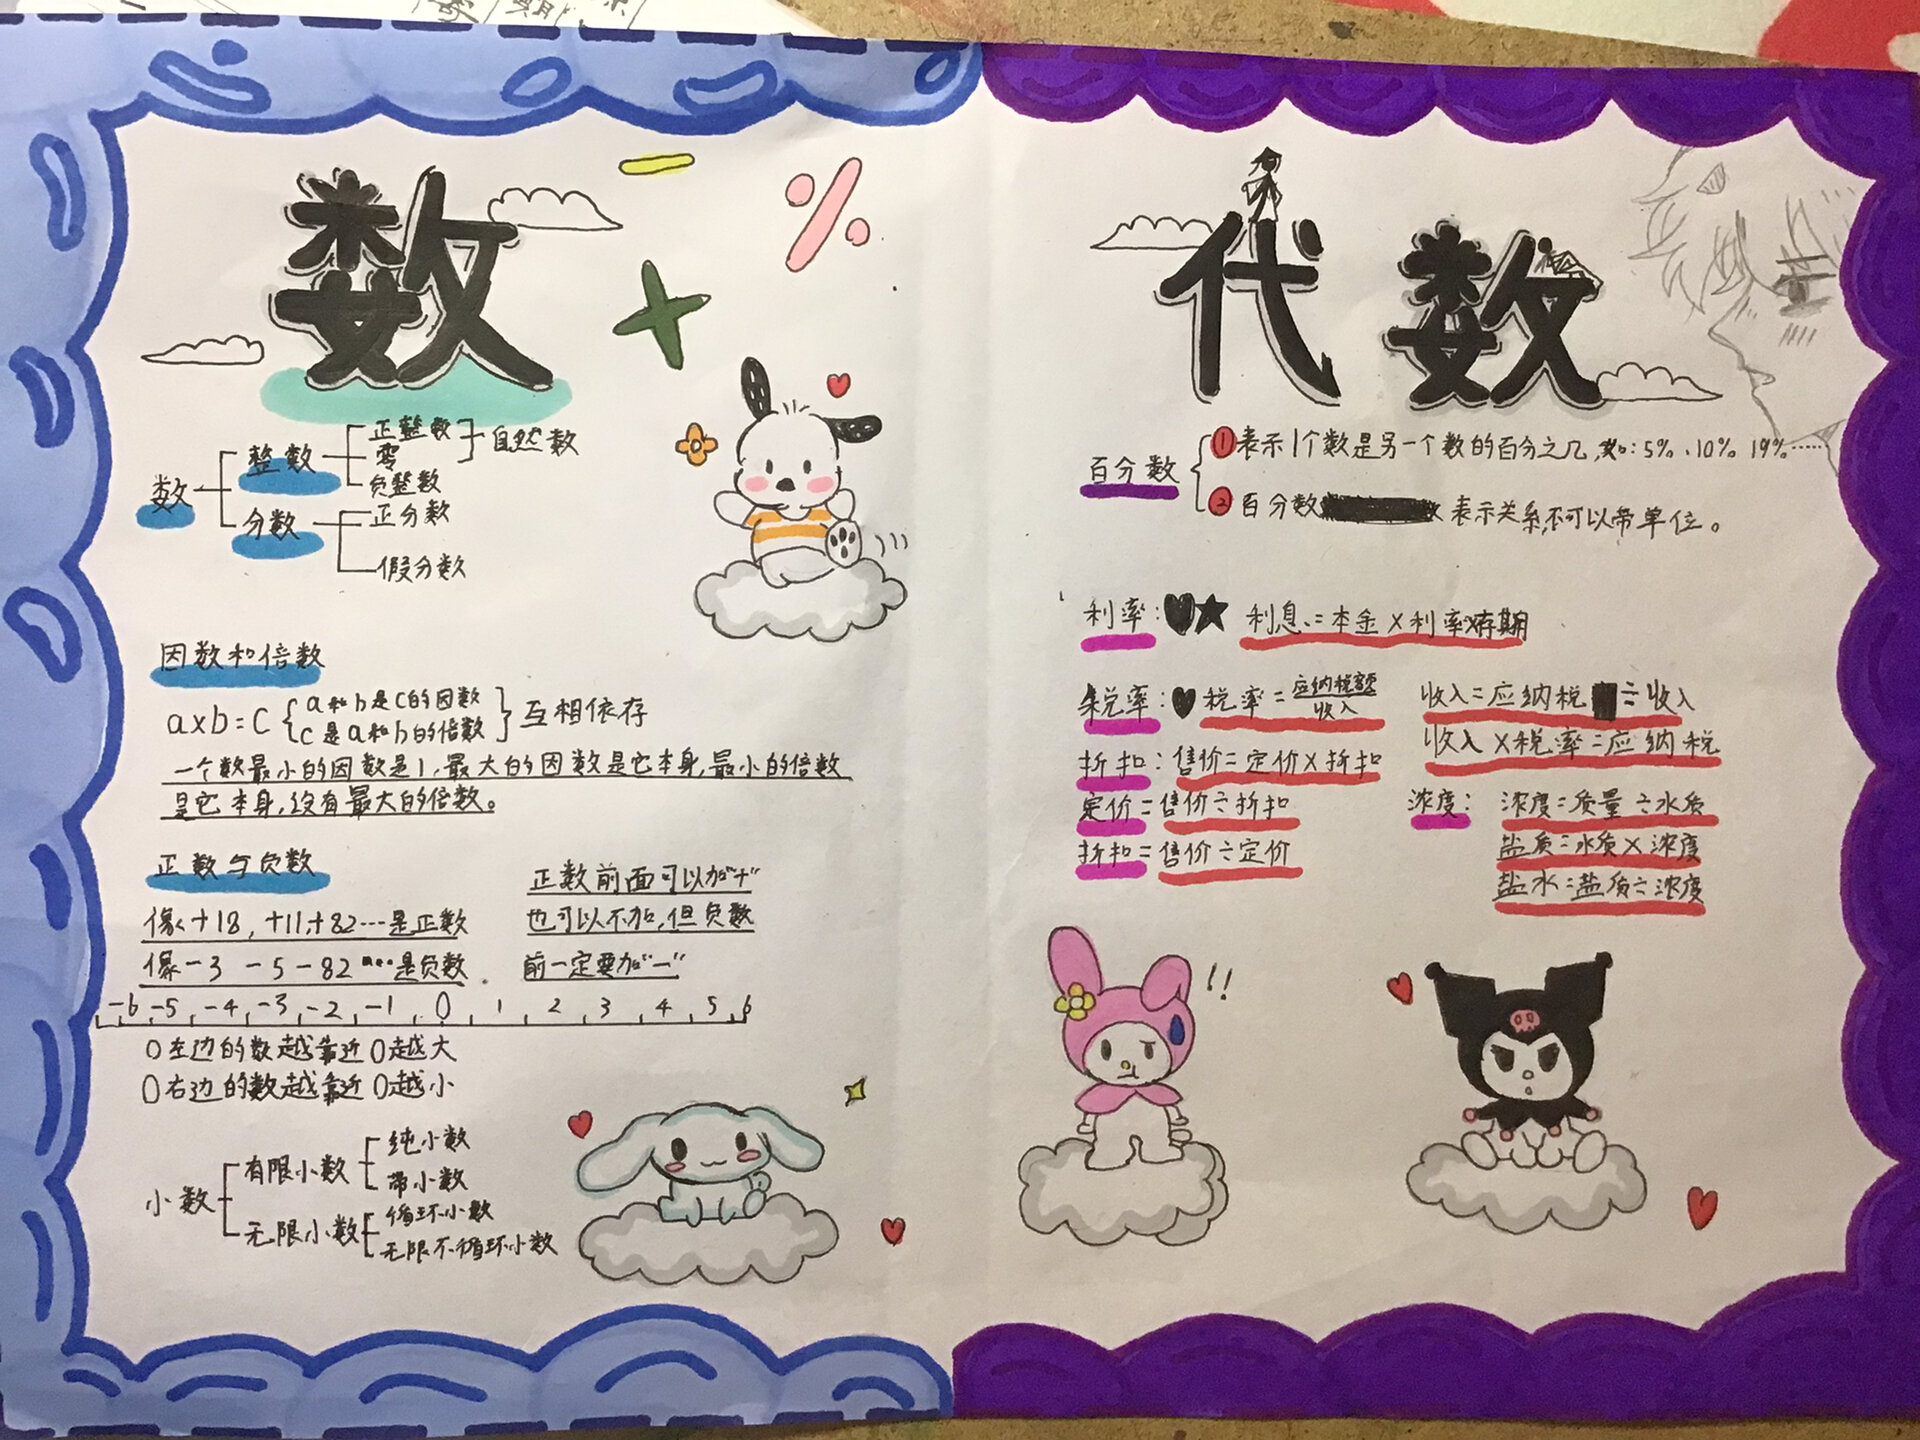 数
数
整数
正整数
零
负整数
自然数
分数
正分数
假分数
因数和倍数
a×b=c
a和b是c的因数
c是a和b的倍数
互相依存
一个数最小的因数是1,最大的因数是它本身,最小的倍数
是它本身,没有最大的倍数。
正数与负数
像+18,+11,+82…是正数
像-3 -5 -82 …是负数.
正数前面可以加"+"
也可以不加,但负数
前一定要加"-"
-6 -5 -4 -3 -2 -1 0 1 2 3 4 5 6
0左边的数越靠近0越大
0右边的数越靠近0越小
小数
有限小数
纯小数
带小数
无限小数
循环小数
无限不循环小数
代数
百分数
①表示1个数是另一个数的百分之几,如:5%、10% 19%……
②百分数 表示关系,不可以带单位。
利率: 利息=本金×利率×存期
税率: 税率=应纳税额/收入
收入=应纳税÷收入
收入×税率=应纳税
折扣:售价=定价×折扣
定价=售价÷折扣
折扣=售价÷定价
浓度: 浓度=质量÷水质
盐质=水质×浓度
盐水=盐质÷浓度
!!